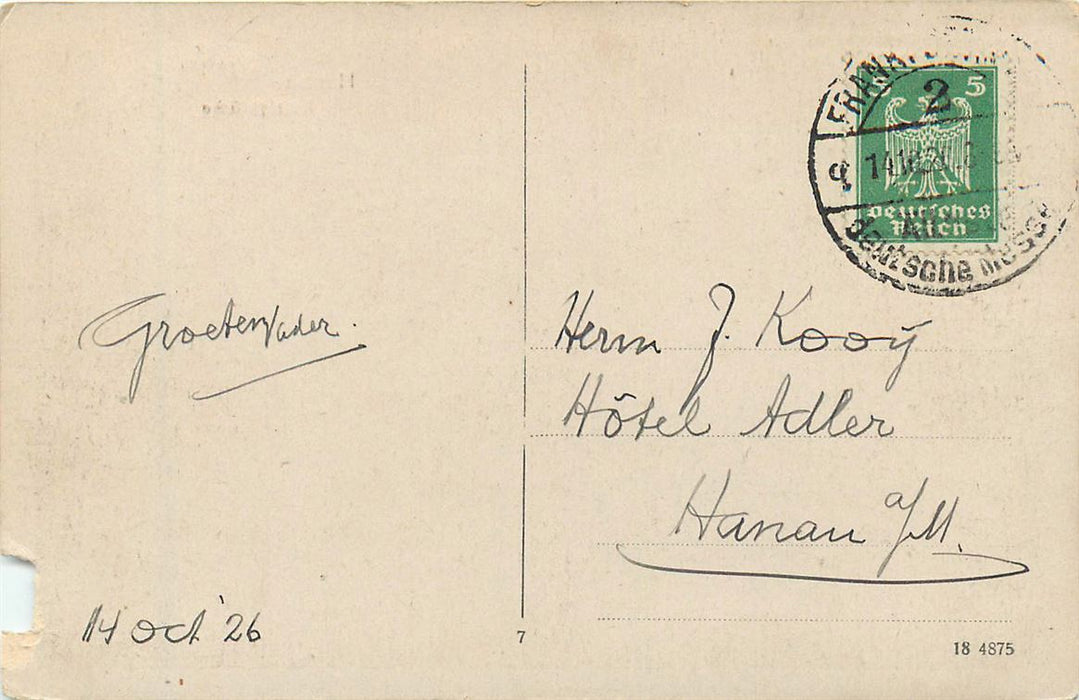 FRANKFURT
2
5
14.10.26
q
Deutsches
Reich
deutsche Messe
Groeten Vader.
Herrn J. Kooÿ
Hôtel Adler
Hanau a/M.
14 Oct '26
7
18 4875